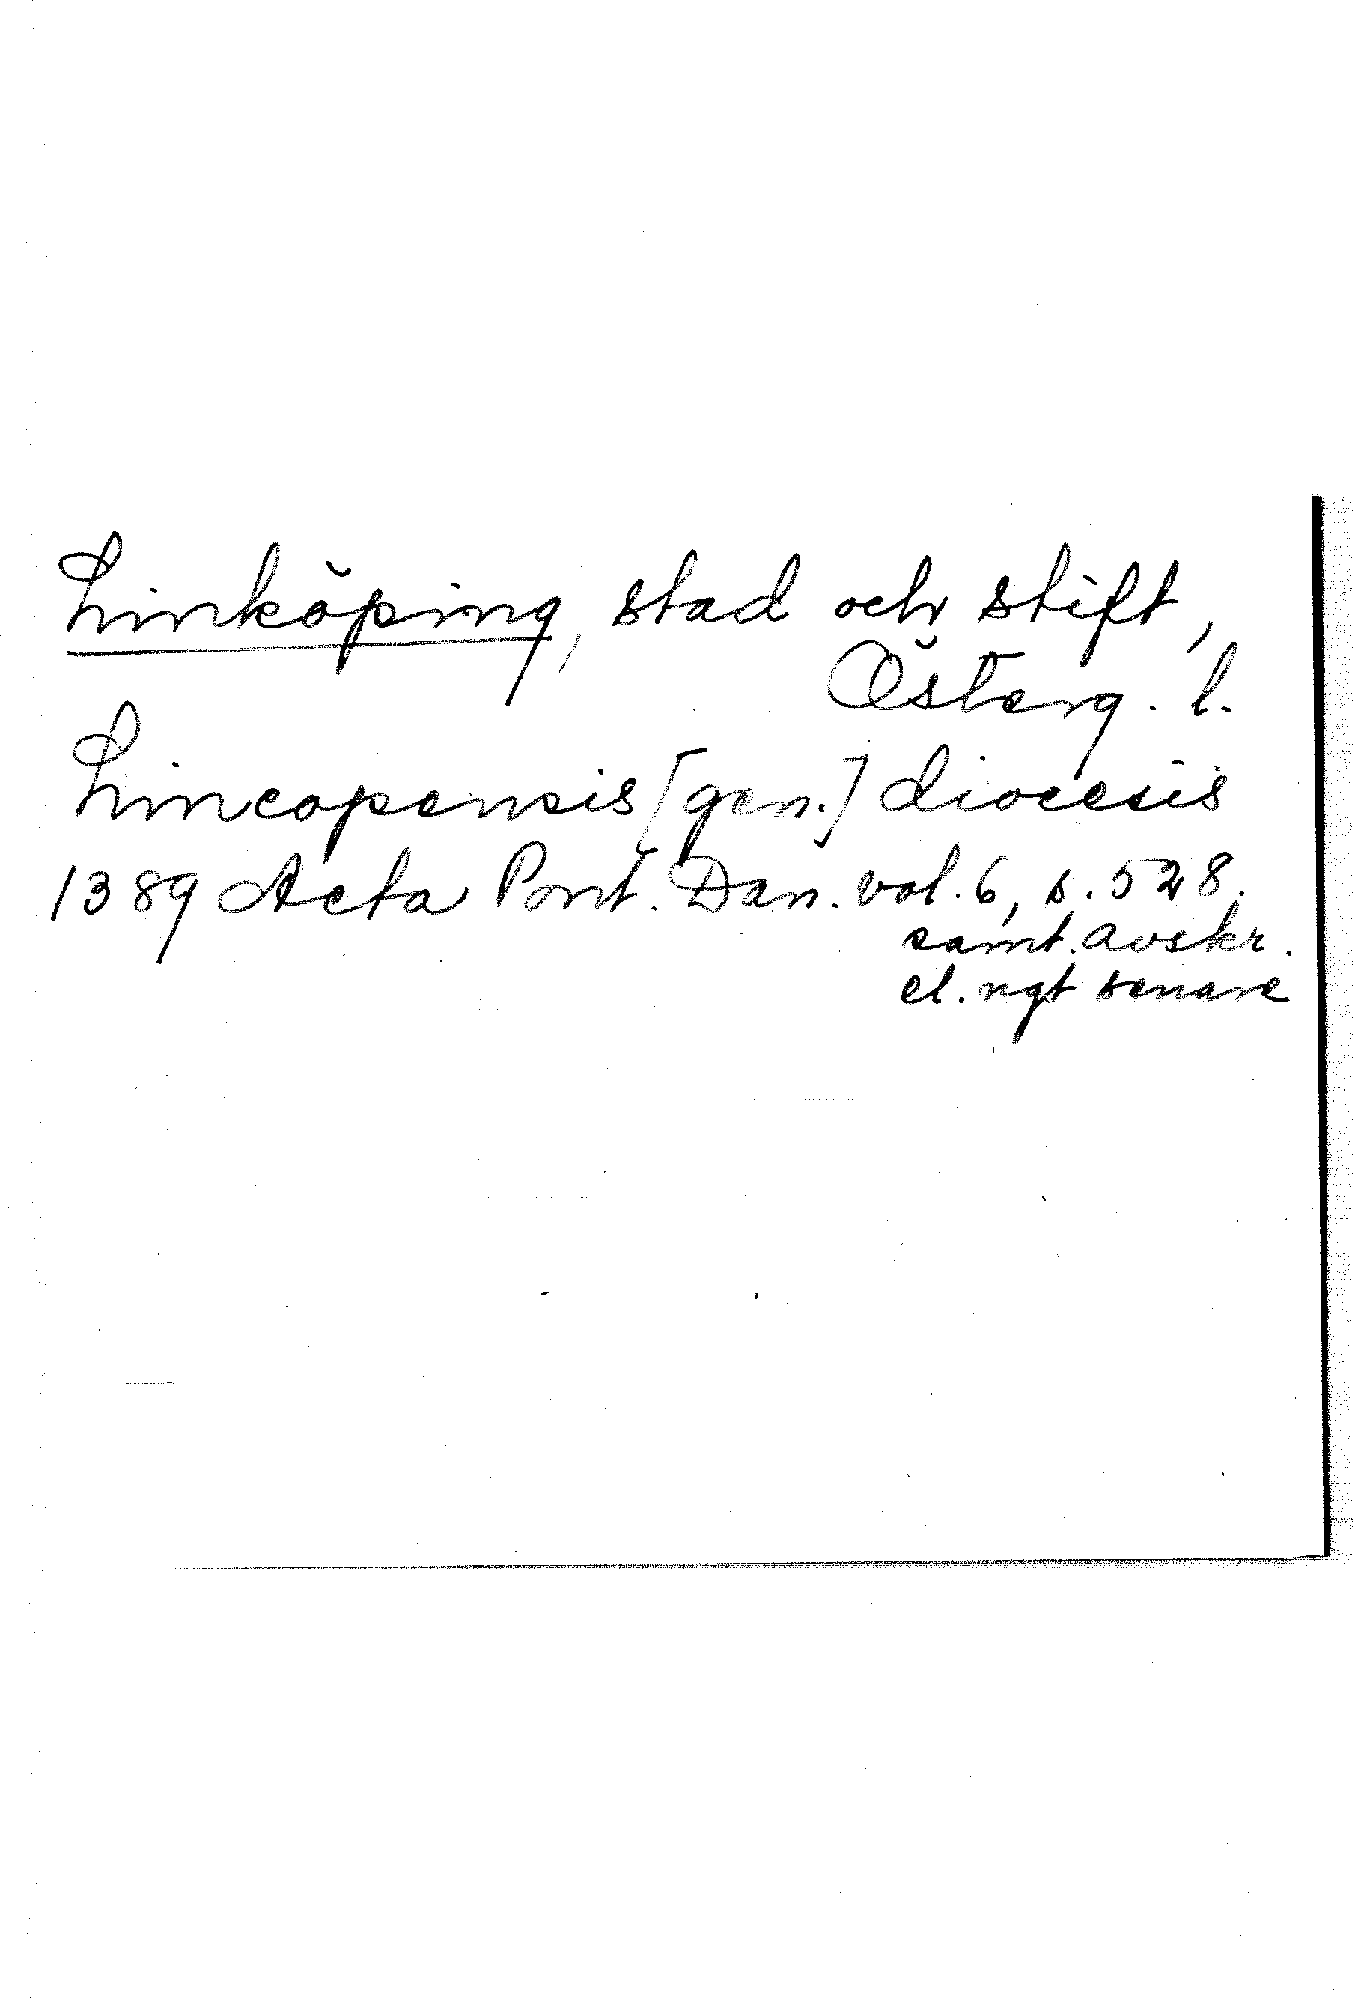 Linköping, stad och stift,
Österg. l.
Lincopensis [gen.] diocesis
1389 Acta Pont. Dan. vol. 6, s. 528.
samt. avskr.
el. ngt senare